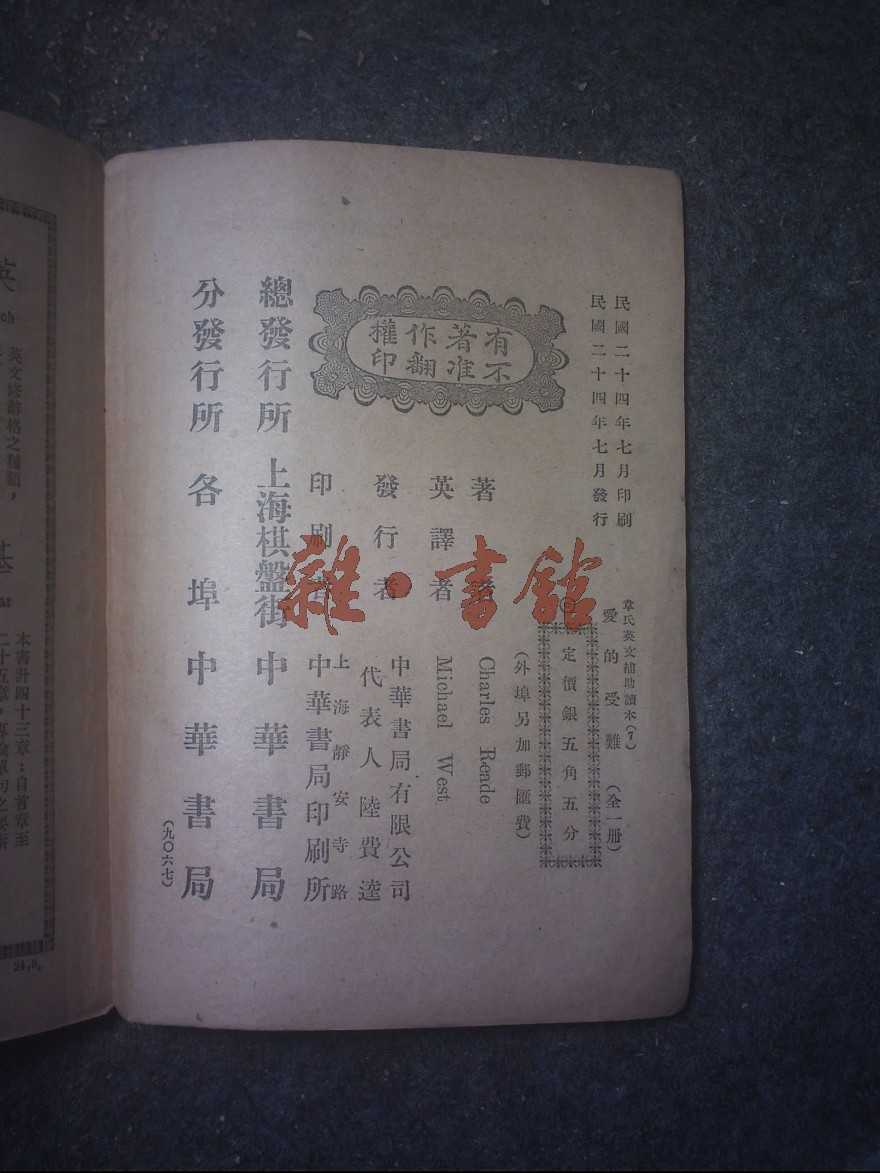 民國二十四年七月印刷
民國二十四年七月發行
韋氏英文補助讀本(7)
愛的受難(全一册)
定價銀五角五分
(外埠另加郵匯費)
有不著准作翻權印
著者 Charles Reade
英譯者 Michael West
發行者 中華書局有限公司
代表人陸費逵
印刷者 上海靜安寺路
中華書局印刷所
總發行所 上海棋盤街 中華書局
分發行所 各埠中華書局
(九〇六七)
雜·書館
英
ch
英文修辭格之種類,
基
ar
本書計四十三章:自首章至
二十五章,專論單句之要素
24,6,